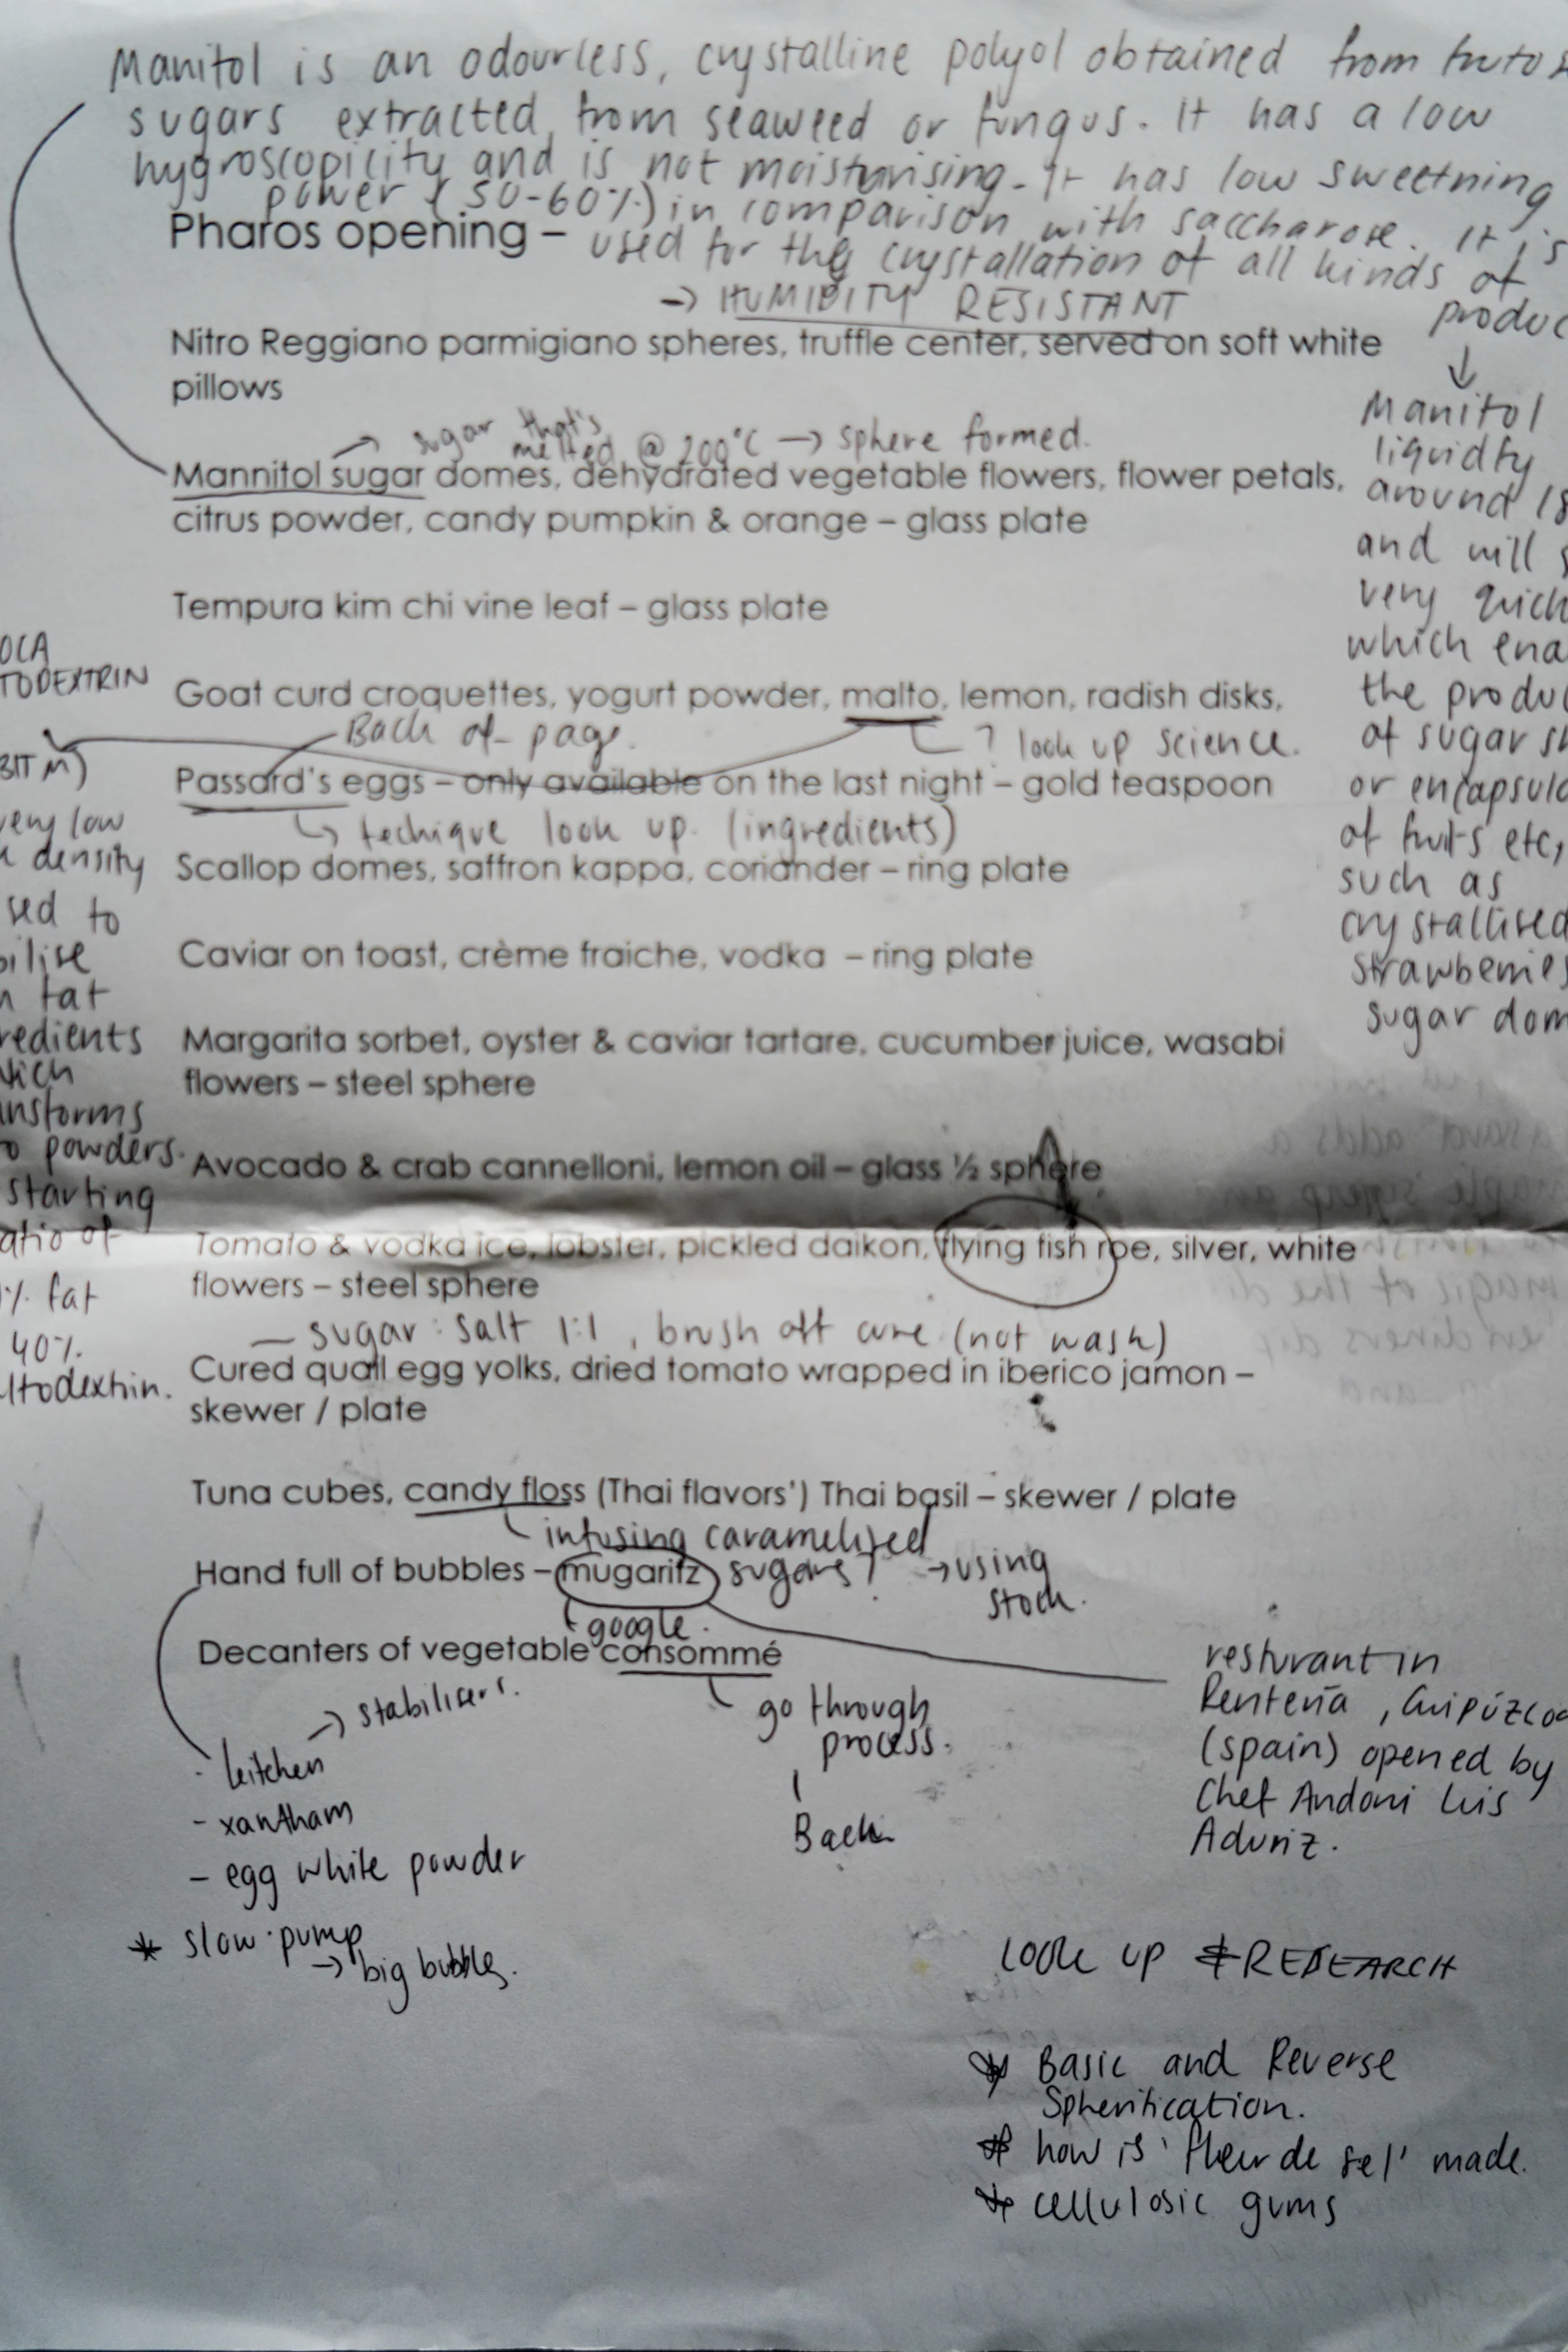 Manitol is an odourless, crystalline polyol obtained from
sugars extracted from seaweed or fungus. It has a low
hygroscopicity and is not moisturising. It has low sweetning
power (50-60%) in comparison with saccharose. It is
Pharos opening –
used for the crystallation of all kinds of
produc
→ HUMIDITY RESISTANT
Nitro Reggiano parmigiano spheres, truffle center, served on soft white
pillows
→ sugar that's
melted @ 200°C → sphere formed.
Mannitol sugar domes, dehydrated vegetable flowers, flower petals,
citrus powder, candy pumpkin & orange – glass plate
Tempura kim chi vine leaf – glass plate
Goat curd croquettes, yogurt powder, malto, lemon, radish disks,
Back of page.
? look up science.
Passard's eggs – only available on the last night – gold teaspoon
↳ techique look up. (ingredients)
Scallop domes, saffron kappa, coriander – ring plate
Caviar on toast, crème fraiche, vodka – ring plate
Margarita sorbet, oyster & caviar tartare, cucumber juice, wasabi
flowers – steel sphere
Avocado & crab cannelloni, lemon oil – glass ½ sphere
Tomato & vodka ice, lobster, pickled daikon, flying fish roe, silver, white
flowers – steel sphere
– sugar : salt 1:1, brush off cure (not wash)
Cured quail egg yolks, dried tomato wrapped in iberico jamon –
skewer / plate
Tuna cubes, candy floss (Thai flavors') Thai basil – skewer / plate
infusing caramelized
sugars? → using
stock.
Hand full of bubbles – mugaritz
google.
Decanters of vegetable consommé
go through
process.
Back
→ stabilisers.
- kitchen
- xantham
- egg white powder
* slow pump
→ big bubbles.
resturant in
Rentería, Guipúzcoa
(spain) opened by
Chef Andoni Luis
Aduriz.
Manitol
liquidty
around 18
and will s
very quick
which ena
the produc
of sugar sh
or encapsula
of fruits etc,
such as
crystallised
strawberries
sugar dom
OCA
TODEXTRIN
BIT M)
very low
density
sed to
bilise
fat
redients
hich
ansforms
o powders.
starting
atio of
% fat
40%
ltodextrin.
LOOK UP & RESEARCH
* Basic and Reverse
Spherification.
* how is 'fleur de sel' made.
* cellulosic gums